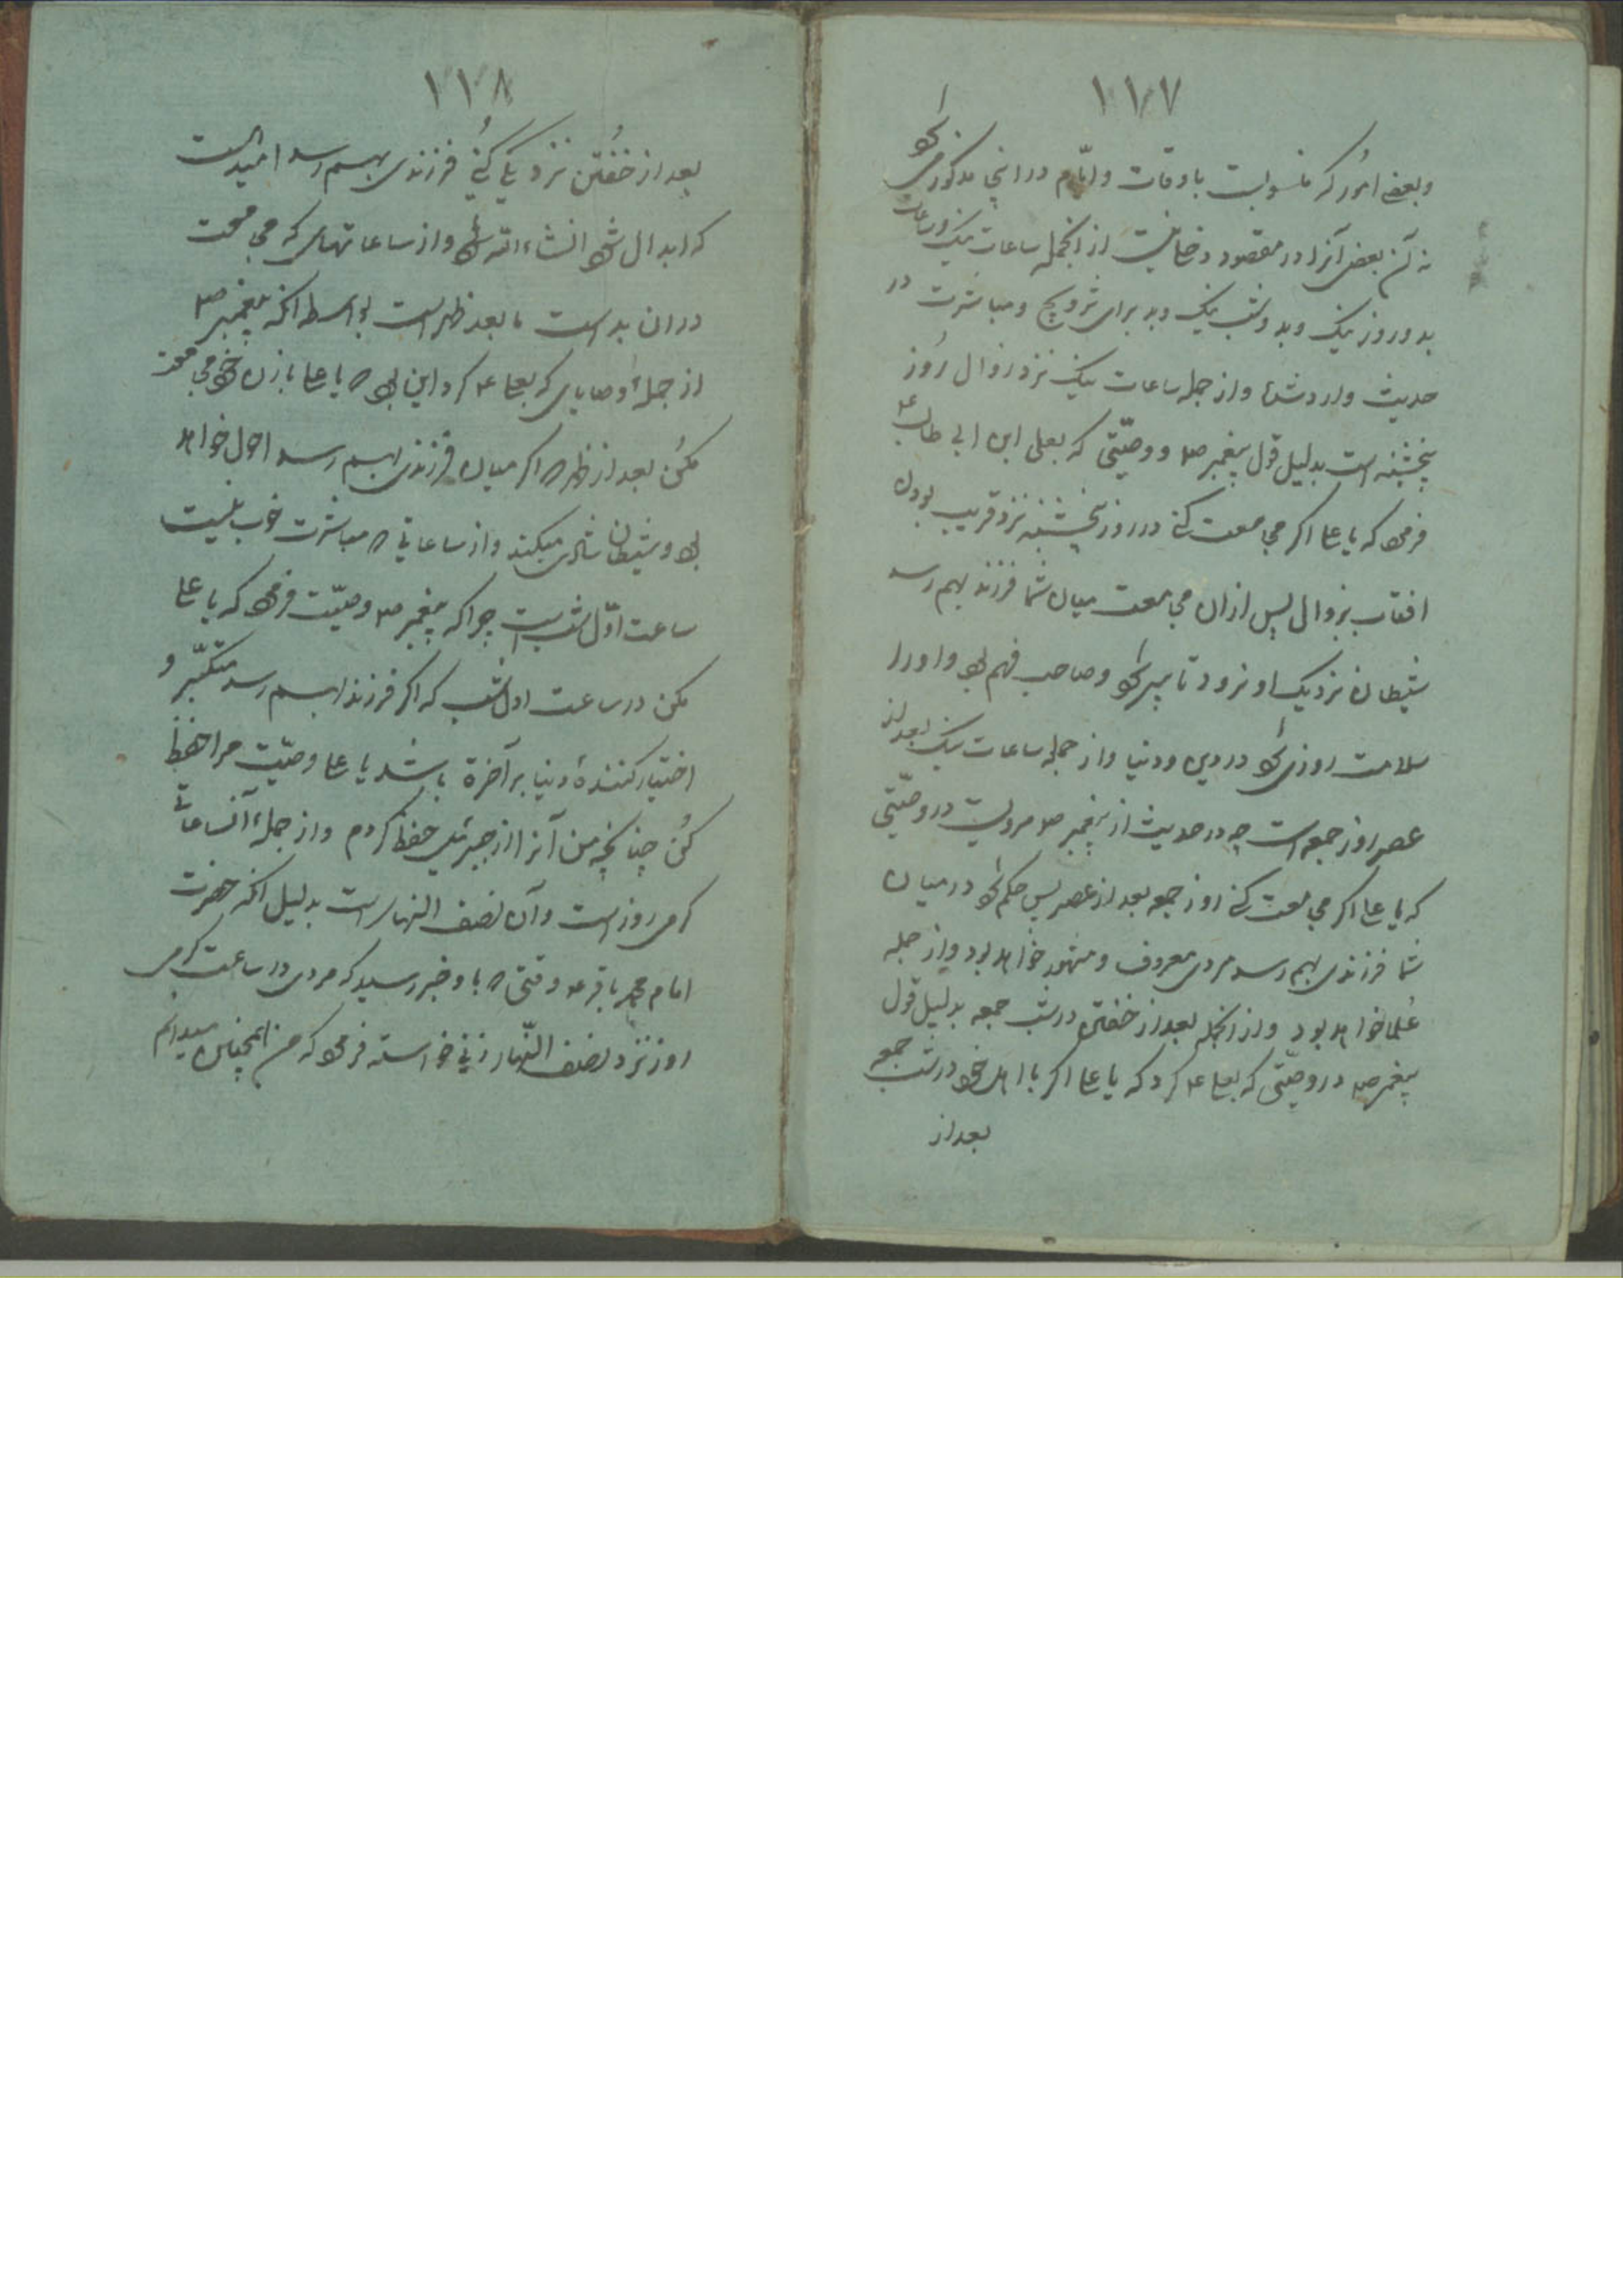 ۱۱۷
وبعضے امُور که منسوبست باوقات وایّام در اینجا مذکور می
نه آن بعض آنرا در مقصود دخلی نیست از انجمله ساعات نیک وساعات
بد و روز نیک وبد وشب نیک وبد برای تزویج ومباشرت در
حدیث وارد شده واز جمله ساعات نیک نزد زوال رُوز
پنجشنبه است بدلیل قول پیغمبر ص و وصیّتی که بعلی ابن ابی طالب ع
فرمود که یا علی اکر مجامعت کنے در روز پنجشنبه نزد قریب بودن
افتاب بزوال پس ازان مجامعت میان شما فرزند بهم رسد
شیطان نزدیک او نرود تا پیر شود وصاحب فهم بود واورا
سلامت روزی شود در دین ودنیا واز جمله ساعات نیک بعد از
عصر روز جمعه است چه در حدیث از پیغمبر ص مرویست در وصیّتی
که یا علی اکر مجامعت کنے روز جمعه بعد از عصر پس حکم شود در میان
شما فرزندی بهم رسد مردی معروف ومشهور خواهد بود واز جمله
عُلما خواهد بود واز انجمله بعد از خفتن در شب جمعه بدلیل قول
پیغمبر ص در وصیّتی که بعلی ع کرد که یا علی اکر با اهل خود در شب جمعه
بعد از
۱۱۸
بعد از خفُتن نزدیکی کُنے فرزندی بهم رسد امید است
که ابدال شود انشاء الله تعالی واز ساعاتهای که مجامعت
دران بد است ما بعد ظهر است بواسطه انکه پیغمبر ص
از جملهٔ وصایای که بعلی ع کرد این بود که یا علی با زن خود مجامعت
مکُن بعد از ظهر که اکر میان فرزندی بهم رسد احول خواهد
بود وشیطان شادی میکند واز ساعاتی که مباشرت خوب نیست
ساعت اوّل شب است چرا که پیغمبر ص وصیّت فرمود که یا علی
مکن در ساعت اول شب که اکر فرزند بهم رسد متکبّر و
اختیار کنندهٔ دنیا بر آخرة باشد یا علی وصیّت مرا حفظ
کُن چنانچه من آنرا از جبرئیل حفظ کردم واز جملهٔ آنساعاتے
کرمی روز است وآن نصف النهار است بدلیل انکه حضرت
امام محمد باقر ع وقتی که باو خبر رسید که مردی در ساعت کرمی
روز نزد نصف النّهار زنی خواسته فرمود که من اینچنین میدانم